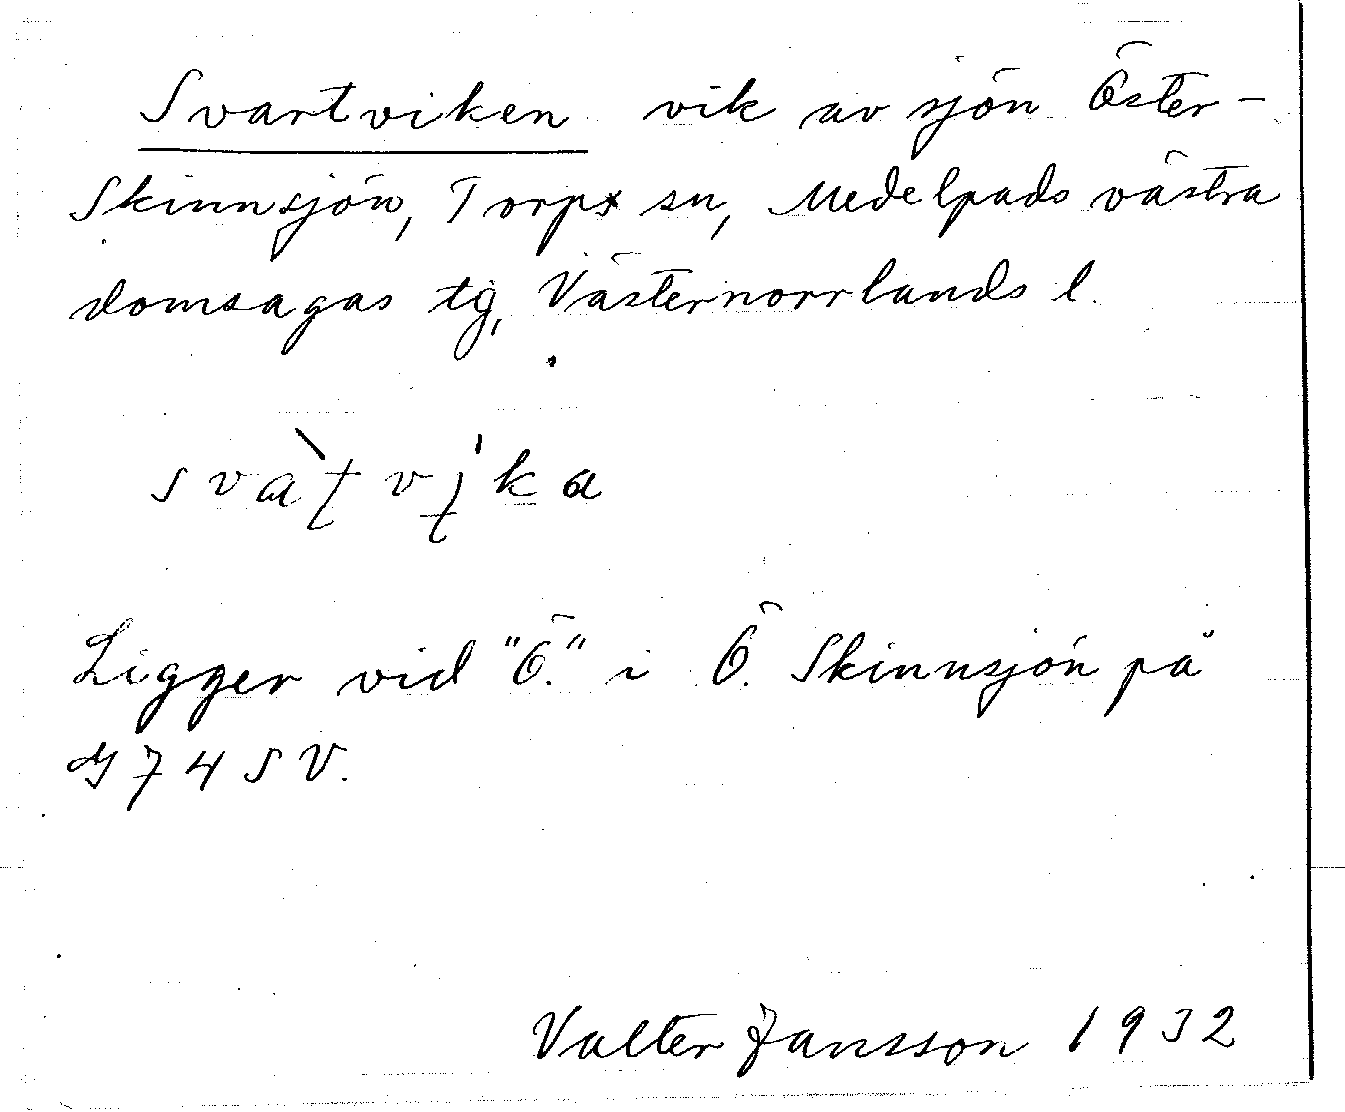 Svartviken vik av sjön Öster-
Skinnsjön, Torps sn, Medelpads västra
domsagas tg, Västernorrlands l.
Ligger vid "Ö." i Ö. Skinnsjön på
G74SV.
Valter Jansson 1932